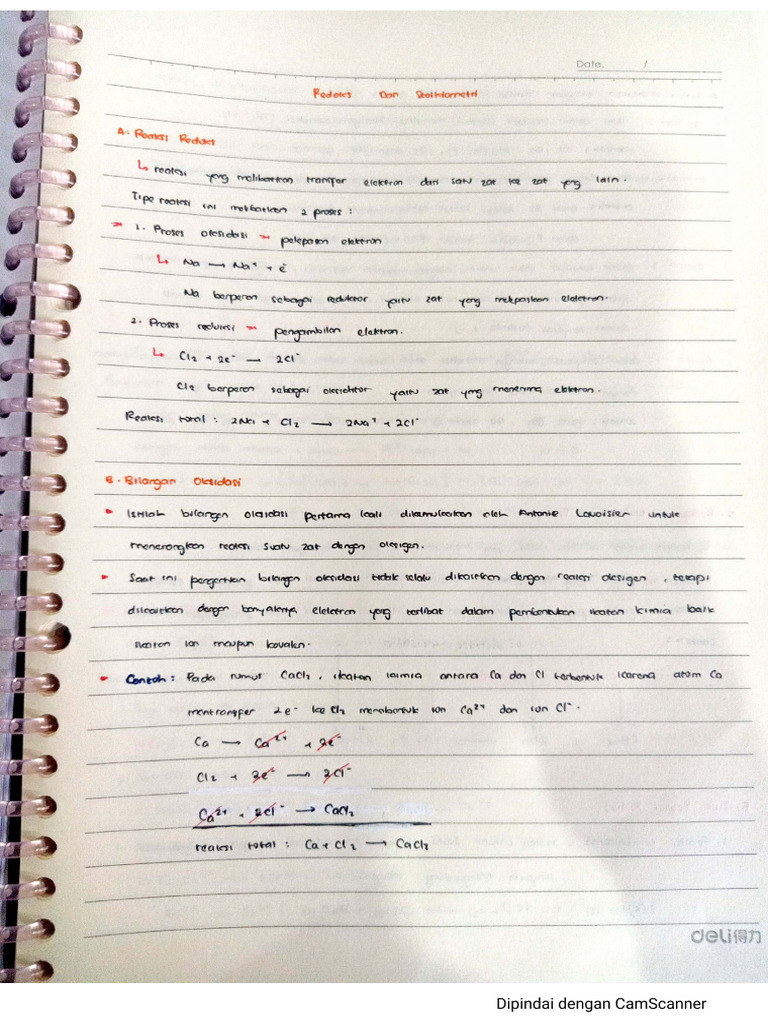 Date. /
Redoks Dan Stoikiometri
A. Reaksi Redoks
↳ reaksi yang melibatkan transfer elektron dari satu zat ke zat yang lain.
Tipe reaksi ini melibatkan 2 proses :
1. Proses oksidasi → pelepasan elektron
↳ Na → Na⁺ + e⁻
Na berperan sebagai reduktor yaitu zat yang melepaskan elektron.
2. Proses reduksi → pengambilan elektron.
↳ Cl₂ + 2e⁻ → 2Cl⁻
Cl₂ berperan sebagai oksidator yaitu zat yang menerima elektron.
Reaksi total : 2Na + Cl₂ → 2Na⁺ + 2Cl⁻
B. Bilangan Oksidasi
Istilah bilangan oksidasi pertama kali dikemukakan oleh Antonie Lavoisier untuk
menerangkan reaksi suatu zat dengan oksigen.
Saat ini pengertian bilangan oksidasi tidak selalu dikaitkan dengan reaksi oksigen , tetapi
dikaitkan dengan banyaknya elektron yang terlibat dalam pembentukan ikatan kimia baik
ikatan ion maupun kovalen.
Contoh : Pada rumus CaCl₂ , ikatan kimia antara Ca dan Cl terbentuk karena atom Ca
mentransper 2e⁻ ke Cl₂ membentuk ion Ca²⁺ dan ion Cl⁻.
Ca → Ca²⁺ + 2e⁻
Cl₂ + 2e⁻ → 2Cl⁻
Ca²⁺ + 2Cl⁻ → CaCl₂
reaksi total : Ca + Cl₂ → CaCl₂
deli得力
Dipindai dengan CamScanner